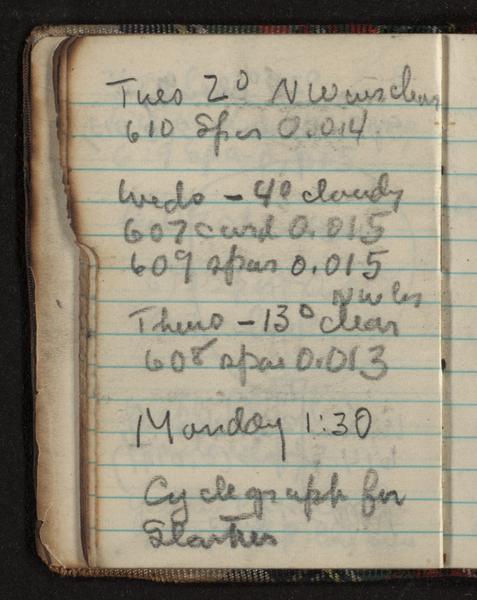 Tues 2° NW clear
610 Spar 0.014
Weds - 4° cloudy
607 curd 0.015
609 spar 0.015
NW
Thurs - 13° clear
608 spar 0.013
Monday 1:30
Cyclegraph for